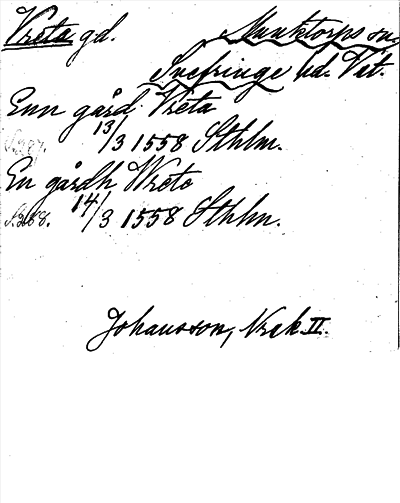 Vreta gd. Munktorps sn,
Snefringe hd. Vst.
Enn gård Vreta
S. 287. 13/3 1558 Sthlm.
En gårdh Wreta
S. 288. 14/3 1558 Sthlm.
Johansson, Vrek II.